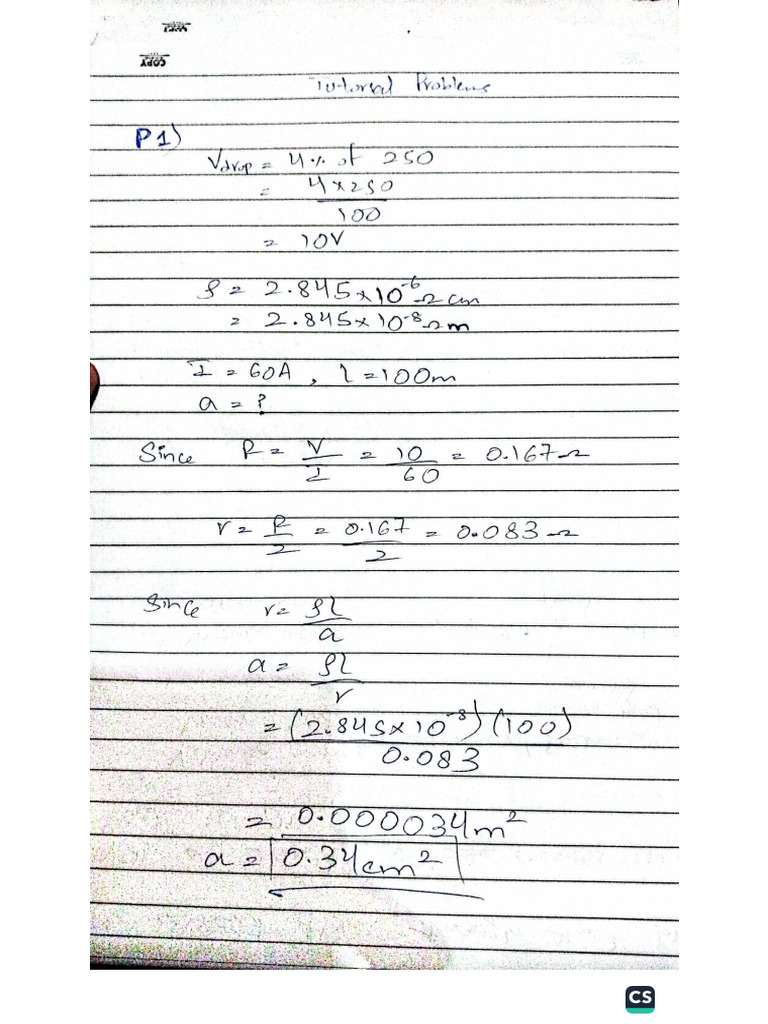 COPY
Tutorial Problems
P1)
Vdrop = 4% of 250
= 4×250
100
= 10V
ρ = 2.845×10⁻⁶ Ω cm
= 2.845×10⁻⁸ Ω m
I = 60A , l = 100m
a = ?
Since R = V/I = 10/60 = 0.167 Ω
r = R/2 = 0.167/2 = 0.083 Ω
Since r = ρl/a
a = ρl/r
= (2.845×10⁻⁸)(100)
0.083
= 0.000034 m²
a = 0.34 cm²
CS